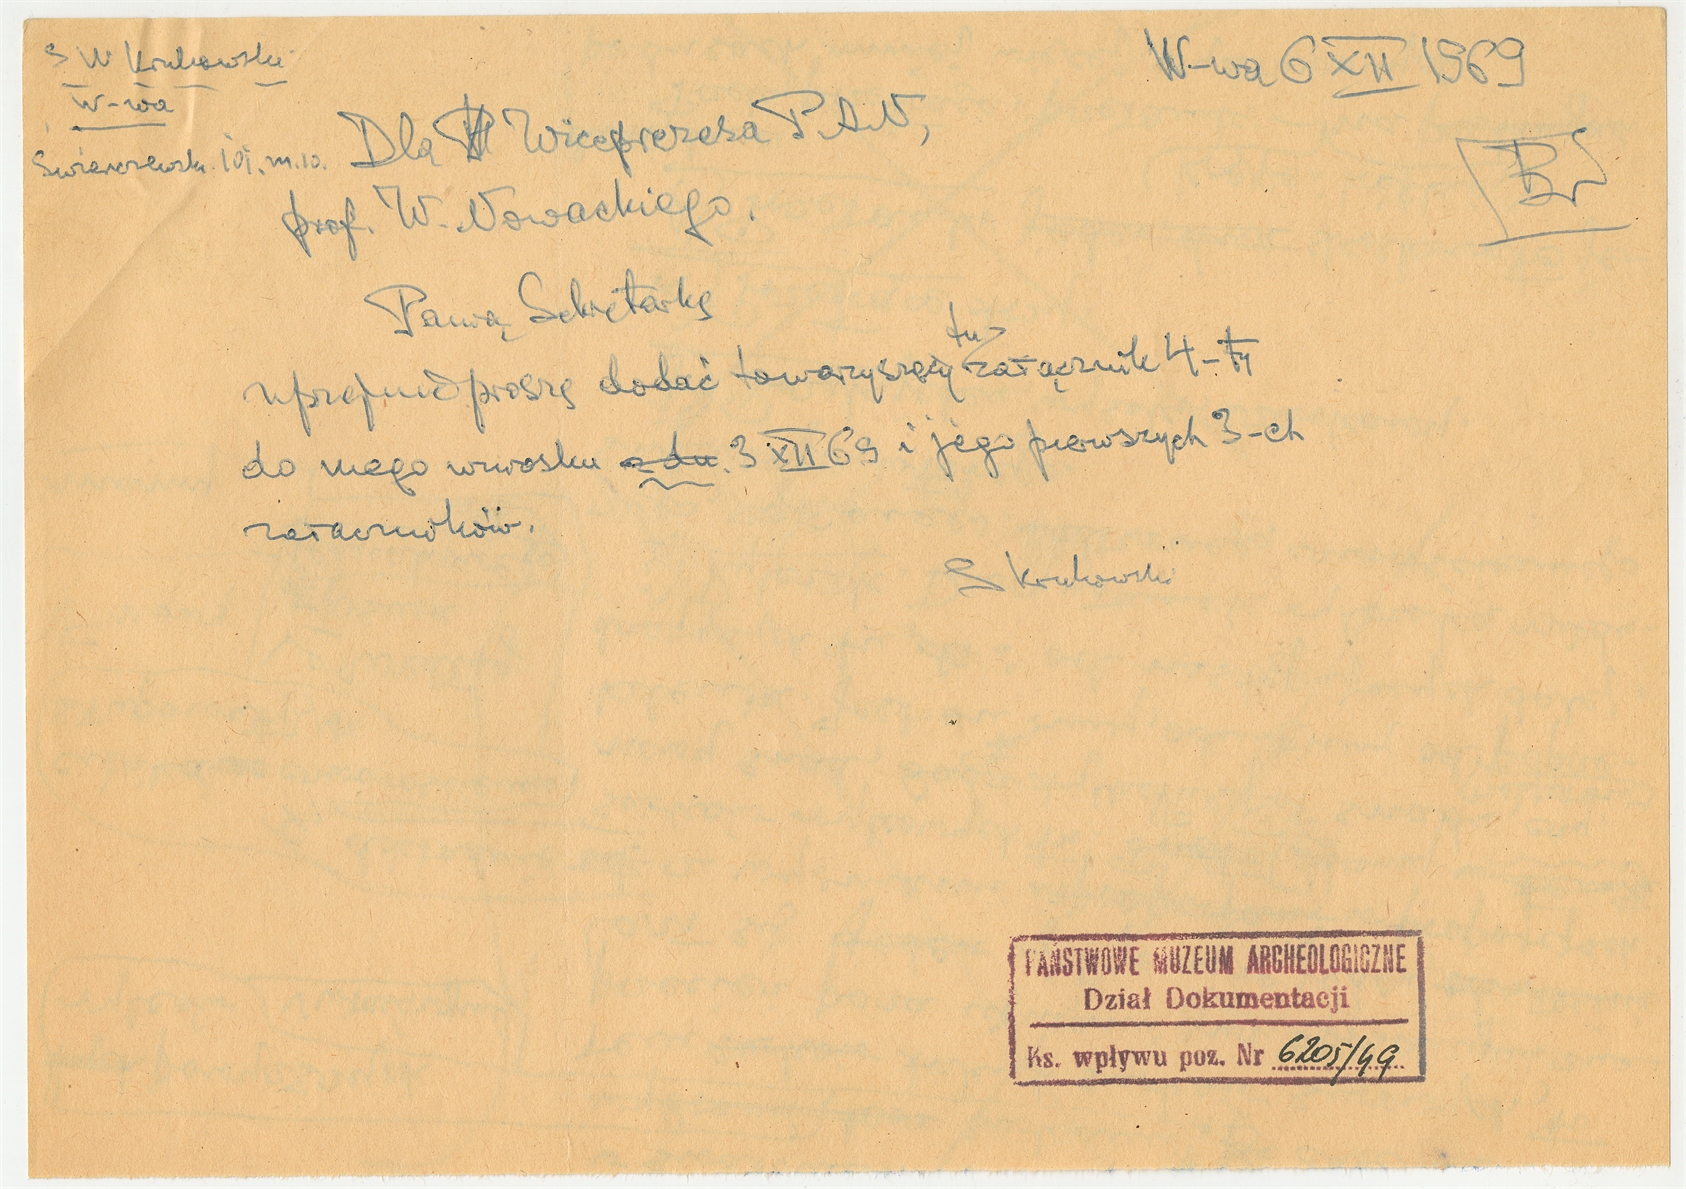 S W Krukowski
W-wa
Świerczewsk. 101. m. 10.
W-wa 6 XII 1969
Dla Wiceprezesa P.A.N,
prof. W. Nowackiego.
Panią Sekretarkę
uprzejmie proszę dodać towarzyszący tu załącznik 4-ty
do mego wniosku z dn. 3 XII 69 i jego pierwszych 3-ch
załączników.
S Krukowski
PAŃSTWOWE MUZEUM ARCHEOLOGICZNE
Dział Dokumentacji
Ks. wpływu poz. Nr 6205/49